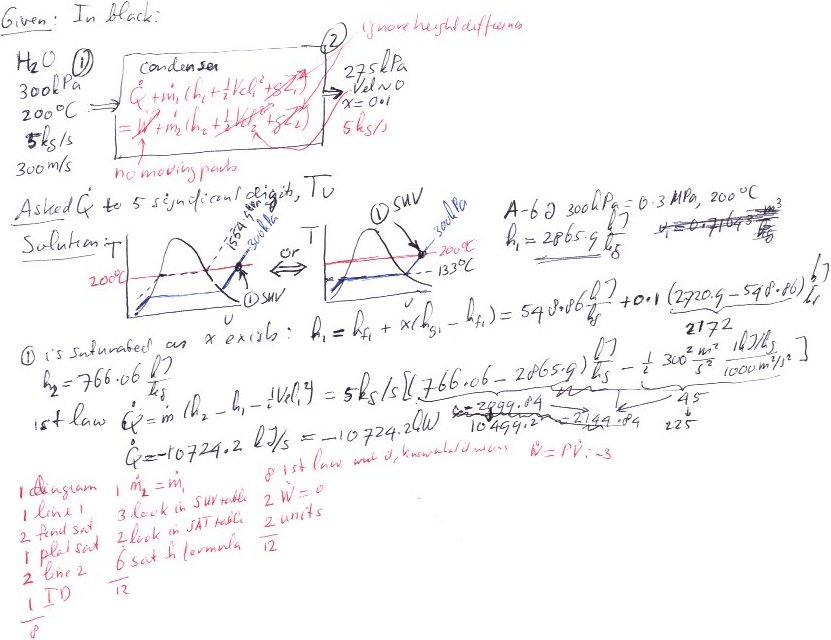 Given: In black:
ignore height difference
②
H2O ①
300kPa
200°C
5kg/s
300m/s
condenser
Q̇ + ṁ1 (h1 + ½Vel1² + gZ1)
= Ẇ + ṁ2 (h2 + ½Vel2² + gZ2)
275kPa
Vel~0
x=0.1
5kg/s
no moving parts
Asked Q̇ to 5 significant digits, Tv
Solution:
T
200°C
1554.9kPa
300kPa
① SHV
v
or
T
① SHV
300kPa
200°C
133°C
v
A-6 @ 300kPa = 0.3 MPa, 200°C
h1 = 2865.9 kJ/kg
① is saturated as x exists: h1 = hf1 + x(hg1 - hf1) = 548.86 kJ/kg + 0.1 (2720.9 - 548.86) kJ/kg
2172
h2 = 766.06 kJ/kg
1st law Q̇ = ṁ (h2 - h1 - ½Vel1²) = 5kg/s[(766.06 - 2865.9) kJ/kg - ½ 300² m²/s² 1kJ/kg / 1000m²/s²]
45
10499.2
2144.84
225
Q̇ = -10724.2 kJ/s = -10724.2kW
1 diagram
1 line 1
2 find sat
1 plot sat
2 line 2
1 ID
8
1 ṁ2 = ṁ1
3 look in SHV table
2 look in SAT table
6 sat h formula
12
8 1st law
2 Ẇ = 0
2 units
12
Ẇ = PV̇: -3